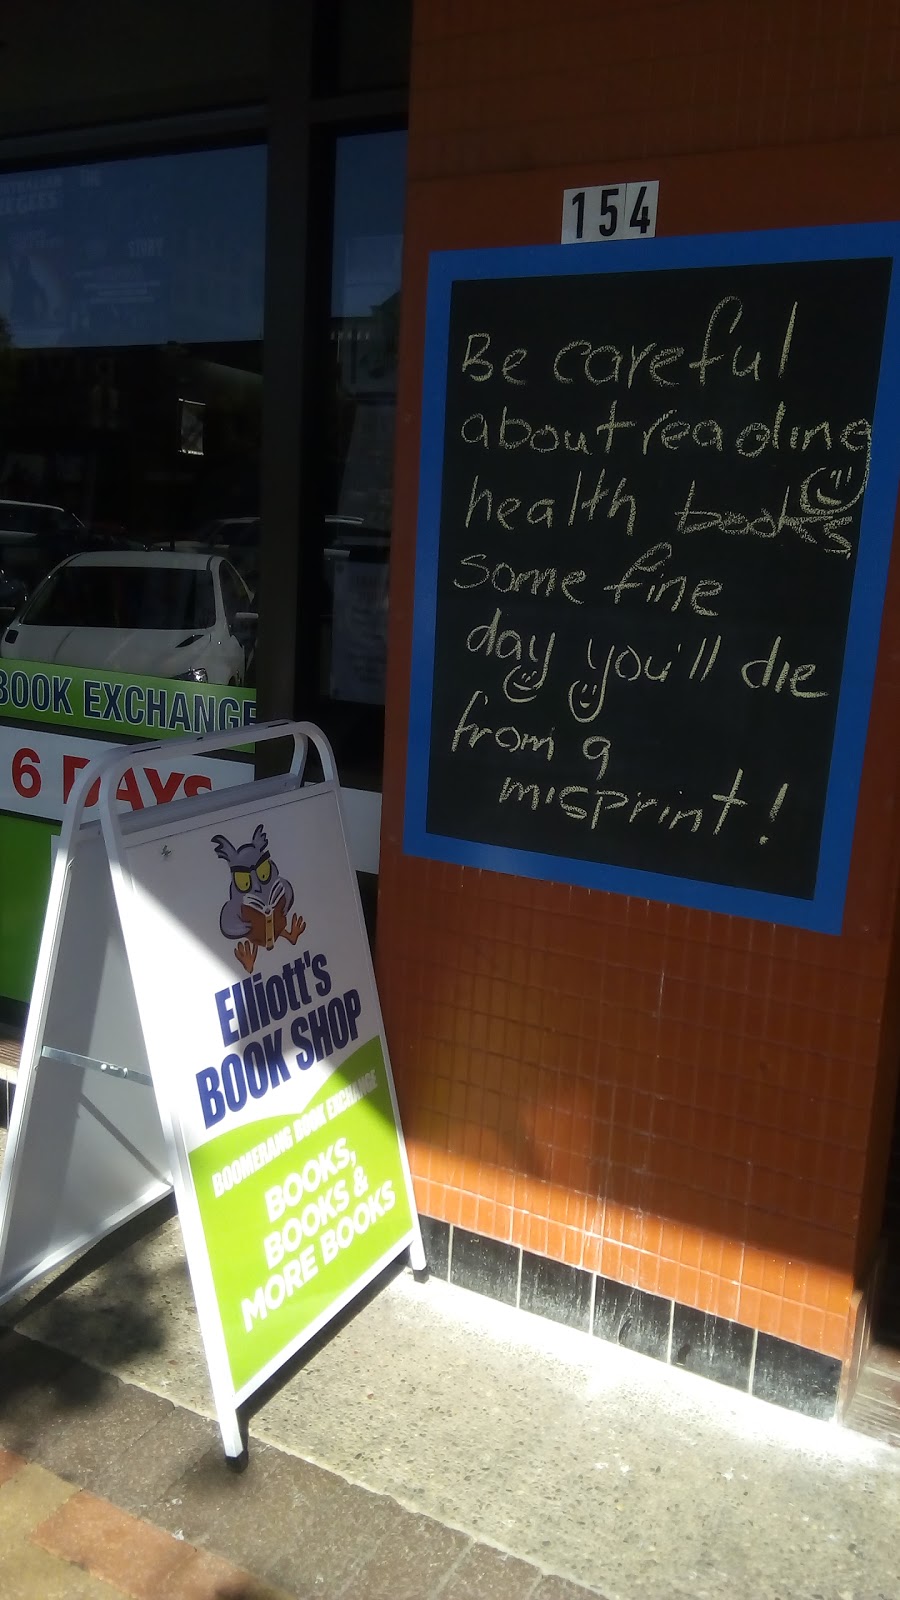 154
Be careful
about reading
health books
some fine
day you'll die
from a
misprint!
STORY
BOOK EXCHANGE
6 DAYS
Elliott's
BOOK SHOP
BOOMERANG BOOK EXCHANGE
BOOKS,
BOOKS &
MORE BOOKS